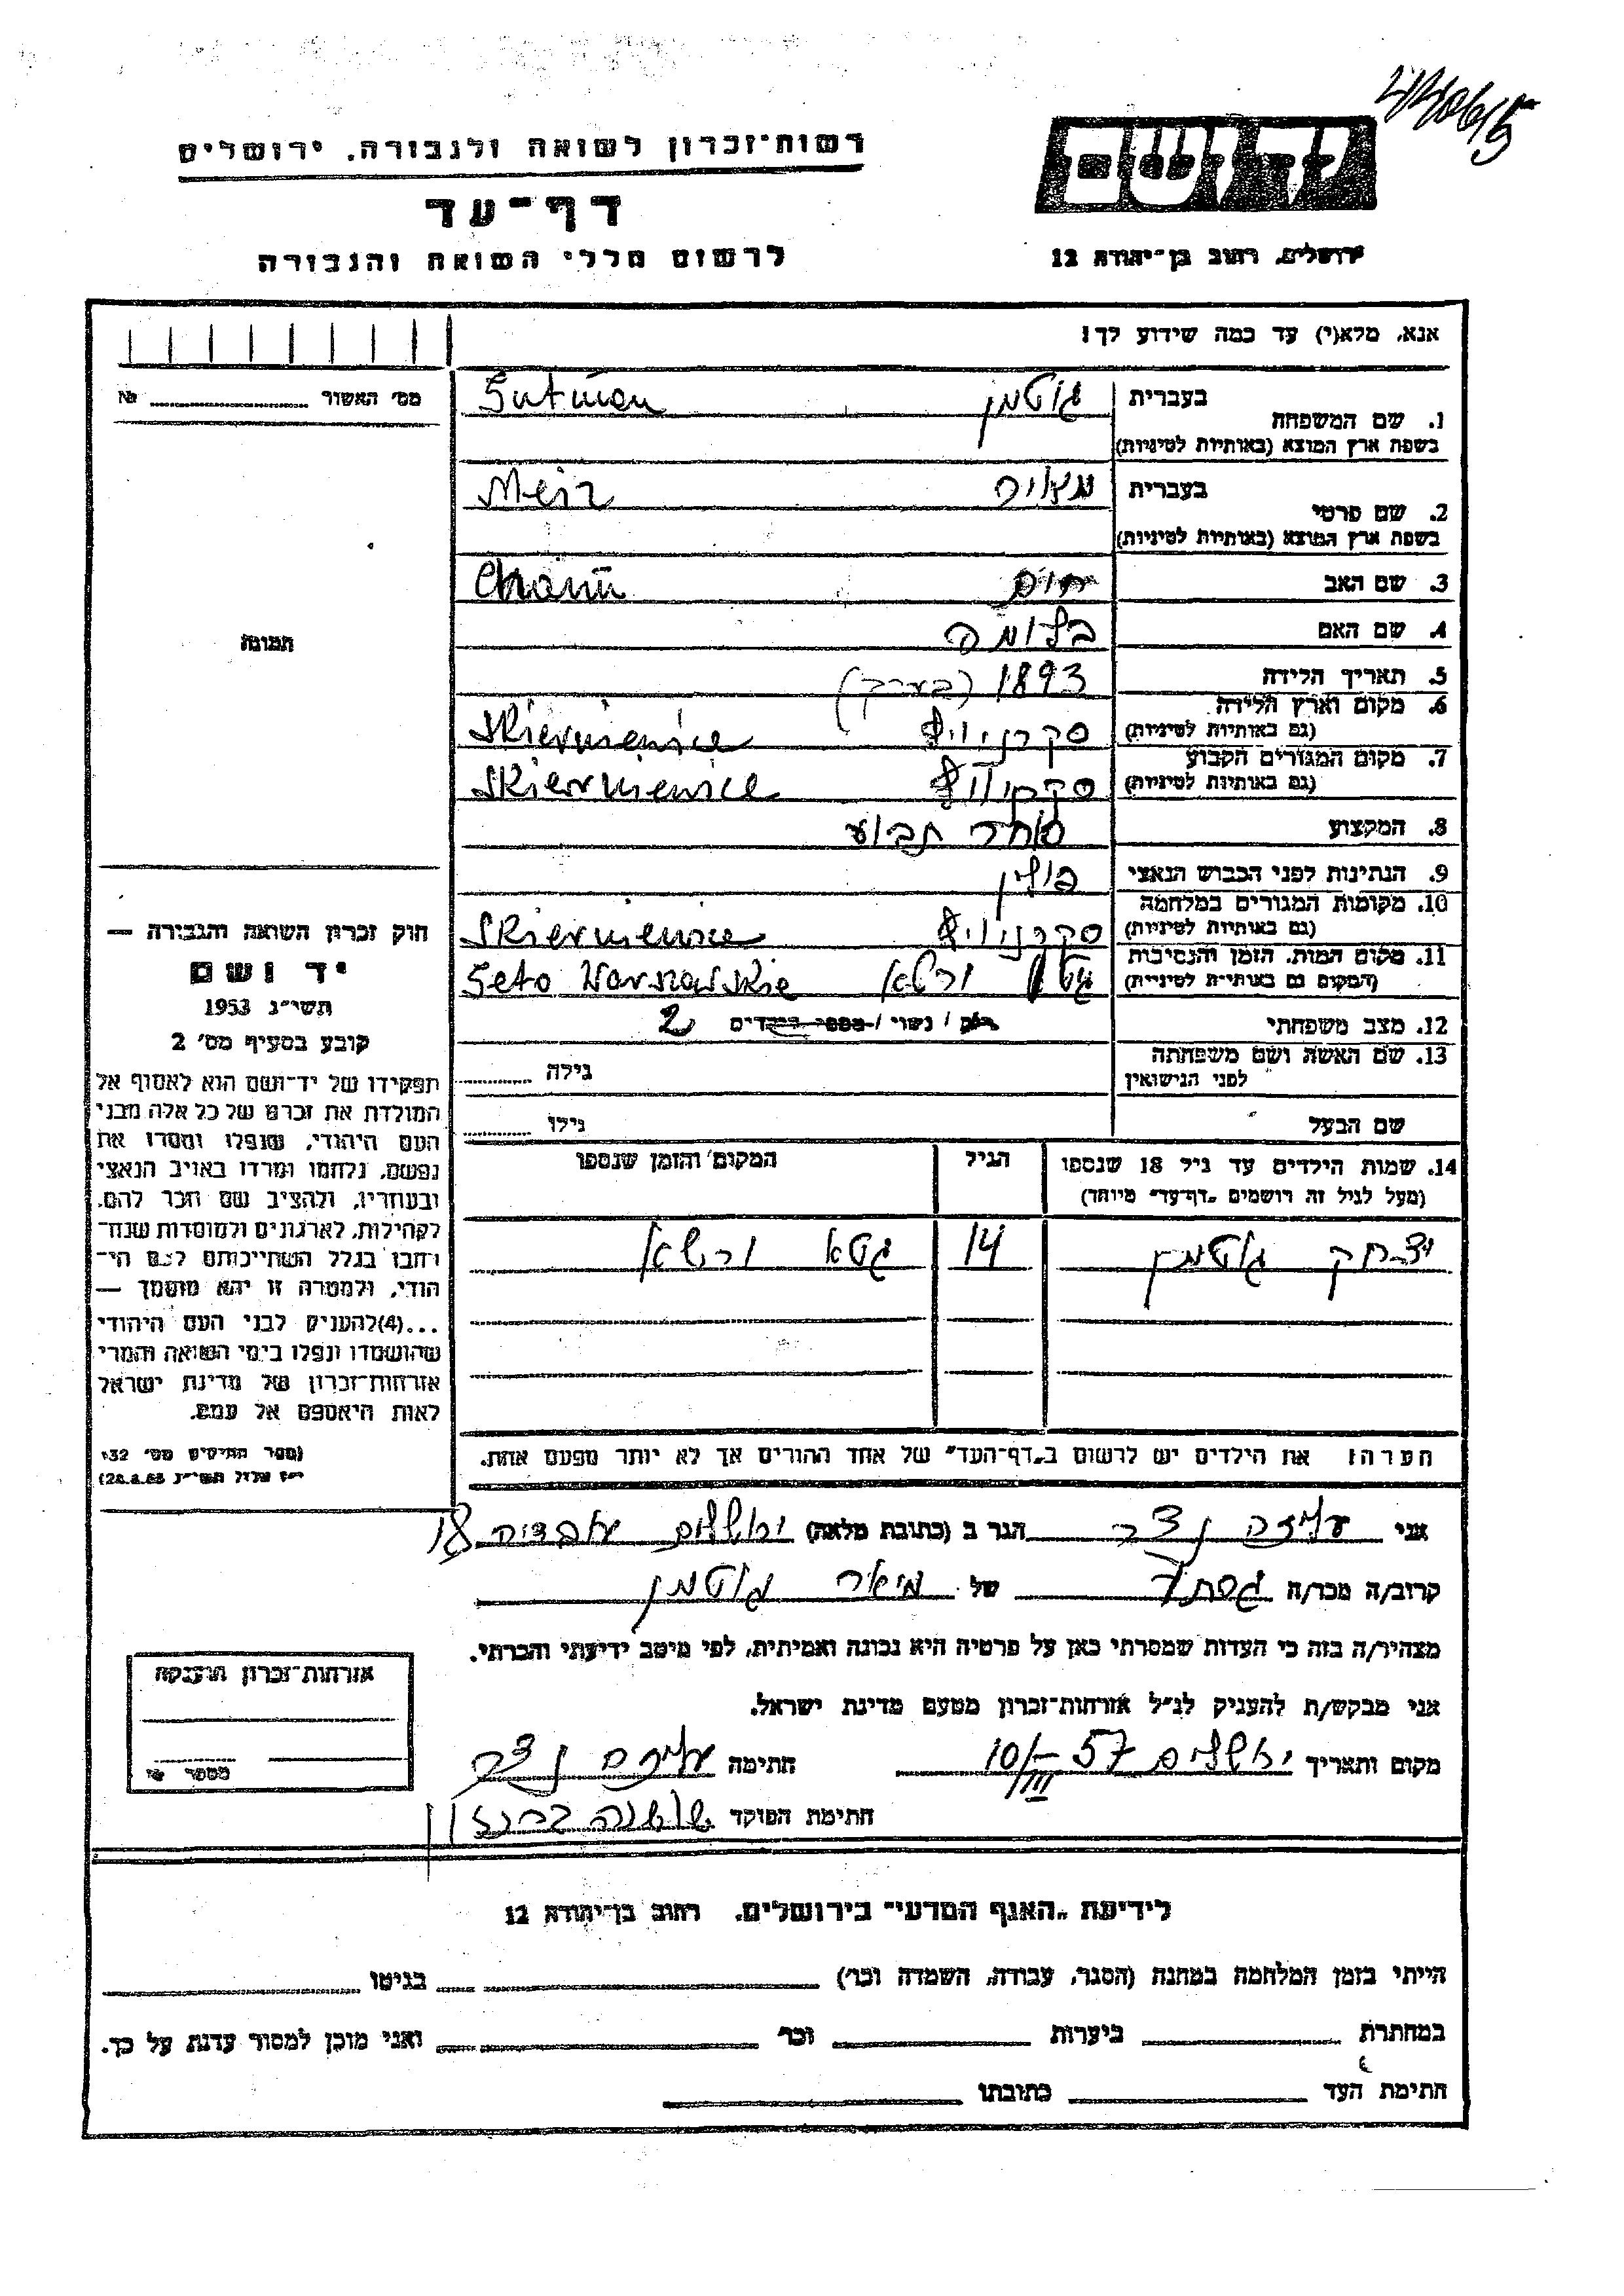 44061/5
רשות־זכרון לשואה ולגבורה, ירושלים
יד ושם
דף־עד
לרשום חללי השואה והגבורה
ירושלים, רחוב בן־יהודה 12
אנא, מלא(י) עד כמה שידוע לך!
מס׳ האשור № 
1. שם המשפחה בעברית גוטמן Gutman
בשפת ארץ המוצא (באותיות לטיניות)
2. שם פרטי בעברית מאיר Meir
בשפת ארץ המוצא (באותיות לטיניות)
3. שם האב חיים Chaim
4. שם האם בלומה
תמונה
5. תאריך הלידה 1893 (בערך)
6. מקום וארץ הלידה (גם באותיות לטיניות) Skierniewice
7. מקום המגורים הקבוע (גם באותיות לטיניות) Skierniewice
8. המקצוע סוחר תבואה
9. הנתינות לפני הכבוש הנאצי פולין
10. מקומות המגורים במלחמה (גם באותיות לטיניות) Skierniewice
11. מקום המות, הזמן והנסיבות (המקום גם באותיות לטיניות) גטו ורשא Geto Warszawskie
12. מצב משפחתי רוק / נשוי / מספר הילדים 2
13. שם האשה ושם משפחתה לפני הנישואין גילה
שם הבעל גילו
14. שמות הילדים עד גיל 18 שנספו (מעל לגיל זה רושמים „דף־עד״ מיוחד) הגיל המקום והזמן שנספו
יצחק גוטמן 14 גטא ורשא
הערה: את הילדים יש לרשום ב„דף־העד״ של אחד ההורים אך לא יותר מפעם אחת.
חוק זכרון השואה והגבורה —
יד ושם
תשי״ג 1953
קובע בסעיף מס׳ 2
תפקידו של יד־ושם הוא לאסוף אל
המולדת את זכרם של כל אלה מבני
העם היהודי, שנפלו ומסרו את
נפשם, נלחמו ומרדו באויב הנאצי
ובעוזריו, ולהציב שם וזכר להם,
לקהילות, לארגונים ולמוסדות שנח־
רבו בגלל השתייכותם לעם הי־
הודי, ולמטרה זו יהא מוסמך —
...(4) להעניק לבני העם היהודי
שהושמדו ונפלו בימי השואה והמרי
אזרחות־זכרון של מדינת ישראל
לאות היאספם אל עמם.
(ספר החוקים מס׳ 132
י״ז אלול תשי״ג 28.8.53)
אני עליזה נצר הגר ב (כתובת מלאה) ירושלים
קרוב/ה מכר/ה של מאיר גוטמן
מצהיר/ה בזה כי העדות שמסרתי כאן על פרטיה היא נכונה ואמיתית, לפי מיטב ידיעתי והכרתי.
אני מבקש/ת להעניק לנ״ל אזרחות־זכרון מטעם מדינת ישראל.
מקום ותאריך ירושלים 10/III–57 חתימה נצר
חתימת הפוקד
אזרחות־זכרון הוענקה
מספר
לידיעת „האגף המדעי״ בירושלים, רחוב בן־יהודה 12
הייתי בזמן המלחמה במחנה (הסגר, עבודה, השמדה וכו׳) בגיטו
במחתרת ביערות וכו׳ ואני מוכן למסור עדות על כך.
חתימת העד כתובתו